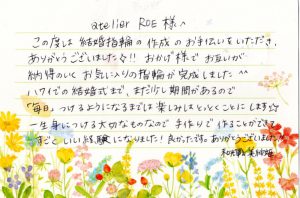 atelier ROE 様へ
この度は 結婚指輪の作成のお手伝いをいただき、
ありがとうございました☆!! おかげ様で お互いが
納得のいく お気に入りの指輪が完成しました ^^
ハワイでの結婚式まで、まだ少し期間があるので
「毎日」つけるようになるまでは 楽しみはとっとくことにします☆
一生身につける大切なものなので 手作りで作ることができて
すごくいい経験になりました! 良かったです。ありがとうございました♪